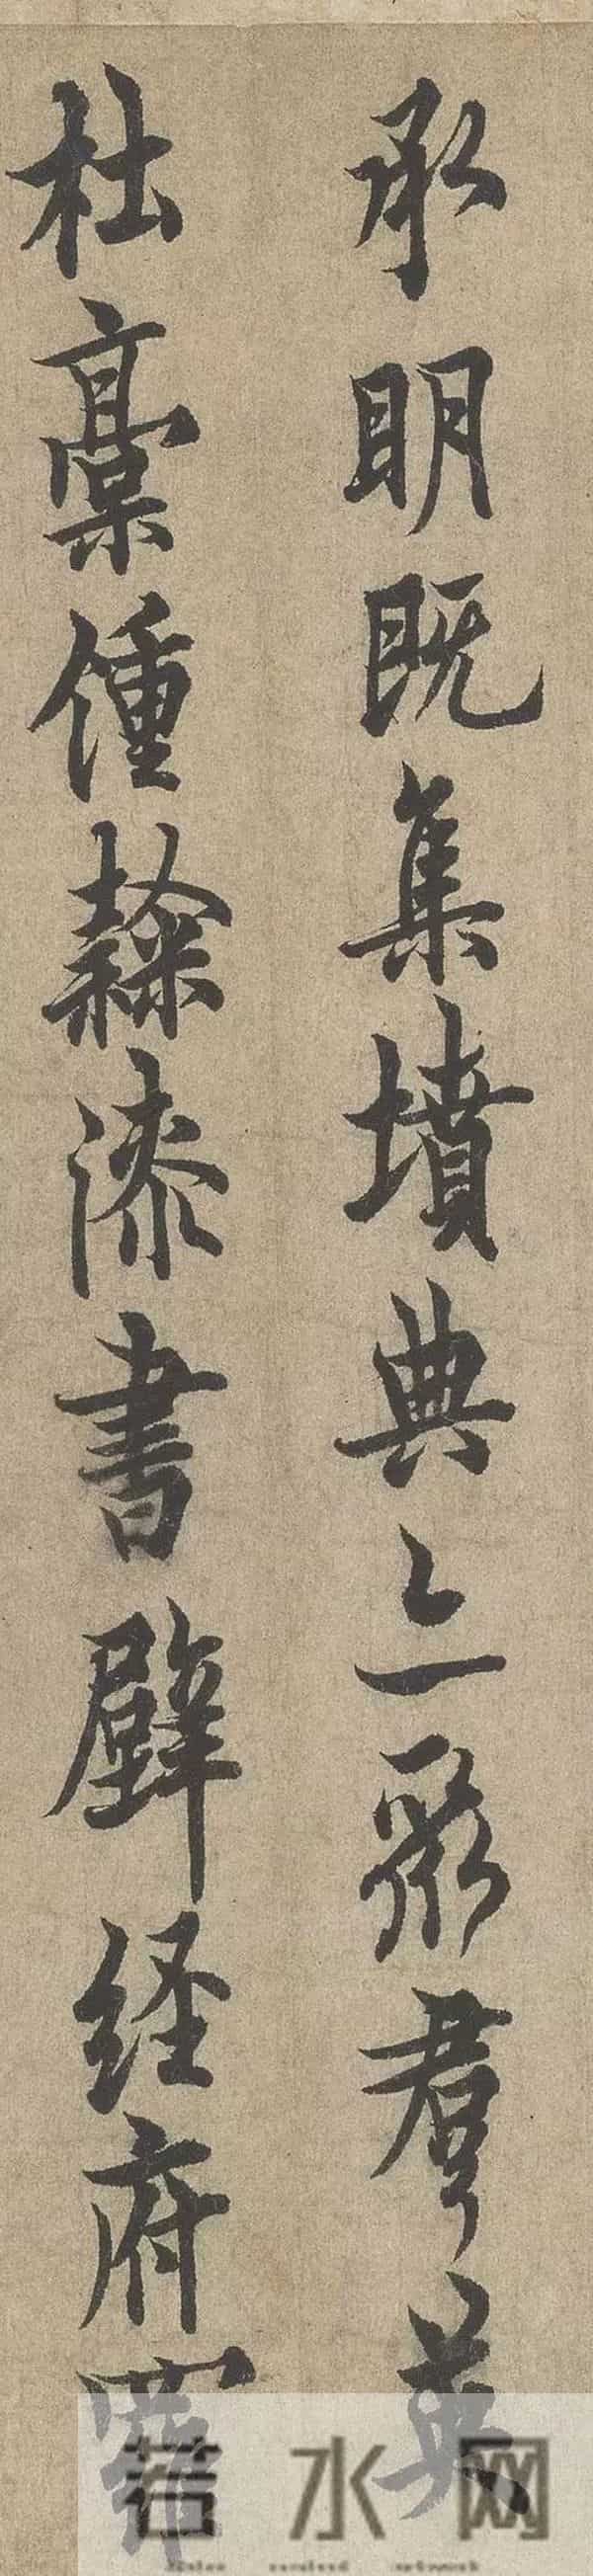 承明既集墳典亦聚羣英
杜稾鍾隸漆書壁經府羅
若水网